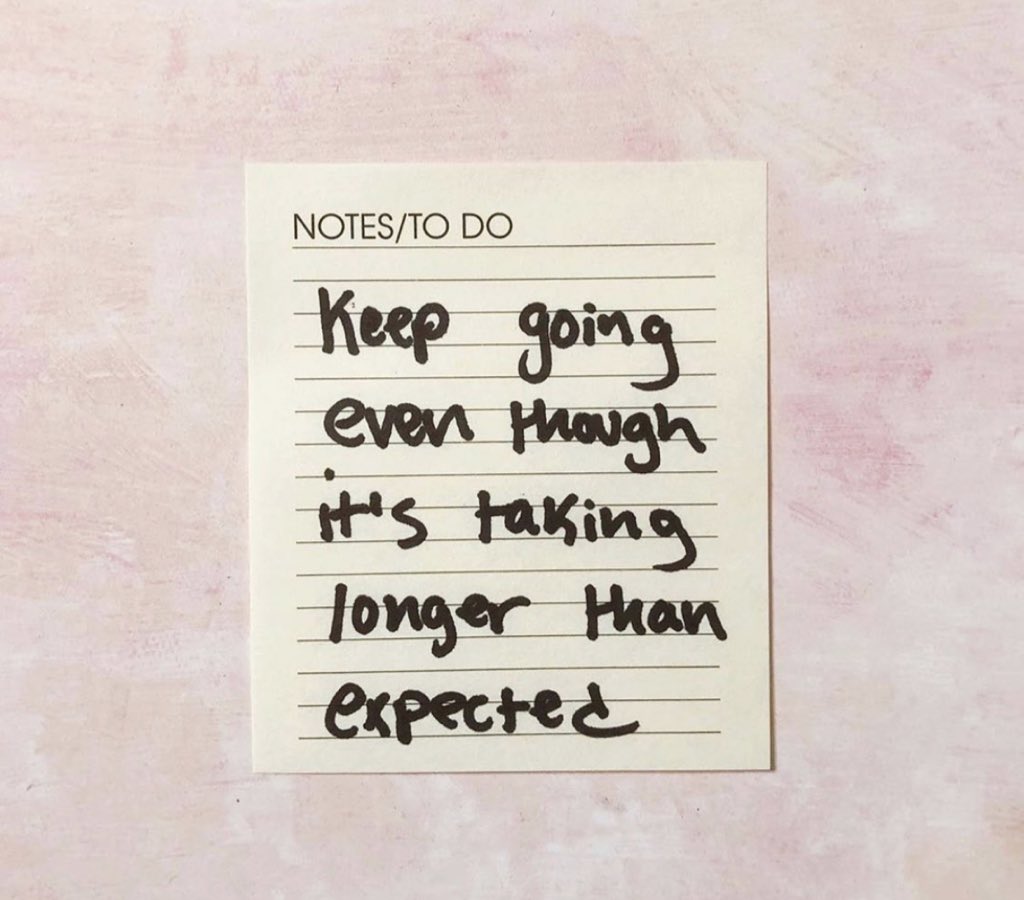 NOTES/TO DO
Keep going
even though
it's taking
longer than
expected